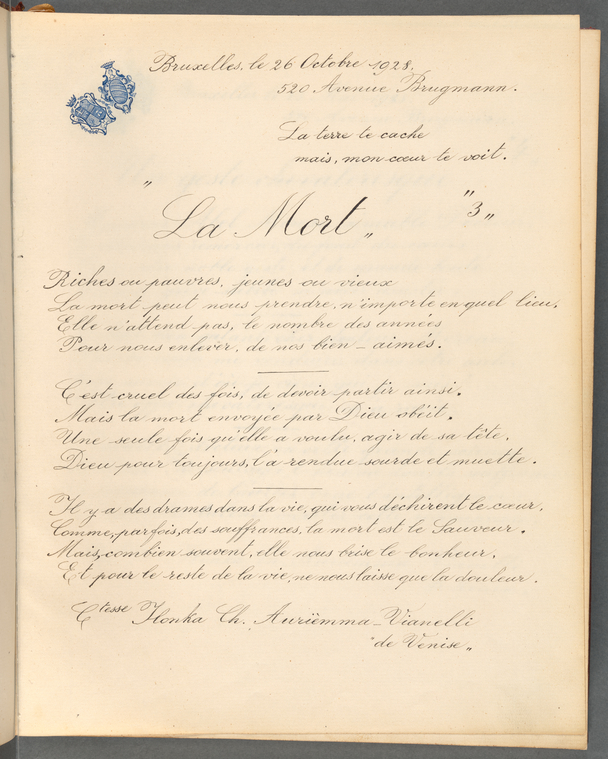 Bruxelles, le 26 Octobre 1928.
520 Avenue Brugmann.
La terre te cache
mais, mon cœur te voit.
" La Mort „
"3„
Riches ou pauvres, jeunes ou vieux
La mort peut nous prendre, n'importe en quel lieu.
Elle n'attend pas, le nombre des années
Pour nous enlever, de nos bien-aimés.
C'est cruel des fois, de devoir partir ainsi.
Mais la mort envoyée par Dieu obéit.
Une seule fois qu'elle a voulu, agir de sa tête.
Dieu pour toujours, l'a rendue sourde et muette.
Il y a des drames dans la vie, qui vous déchirent le cœur.
Comme, parfois, des souffrances, la mort est le Sauveur.
Mais, combien souvent, elle nous brise le bonheur.
Et pour le reste de la vie, ne nous laisse que la douleur.
Ctesse Ilonka Ch. Auriëmma-Vianelli
"de Venise„